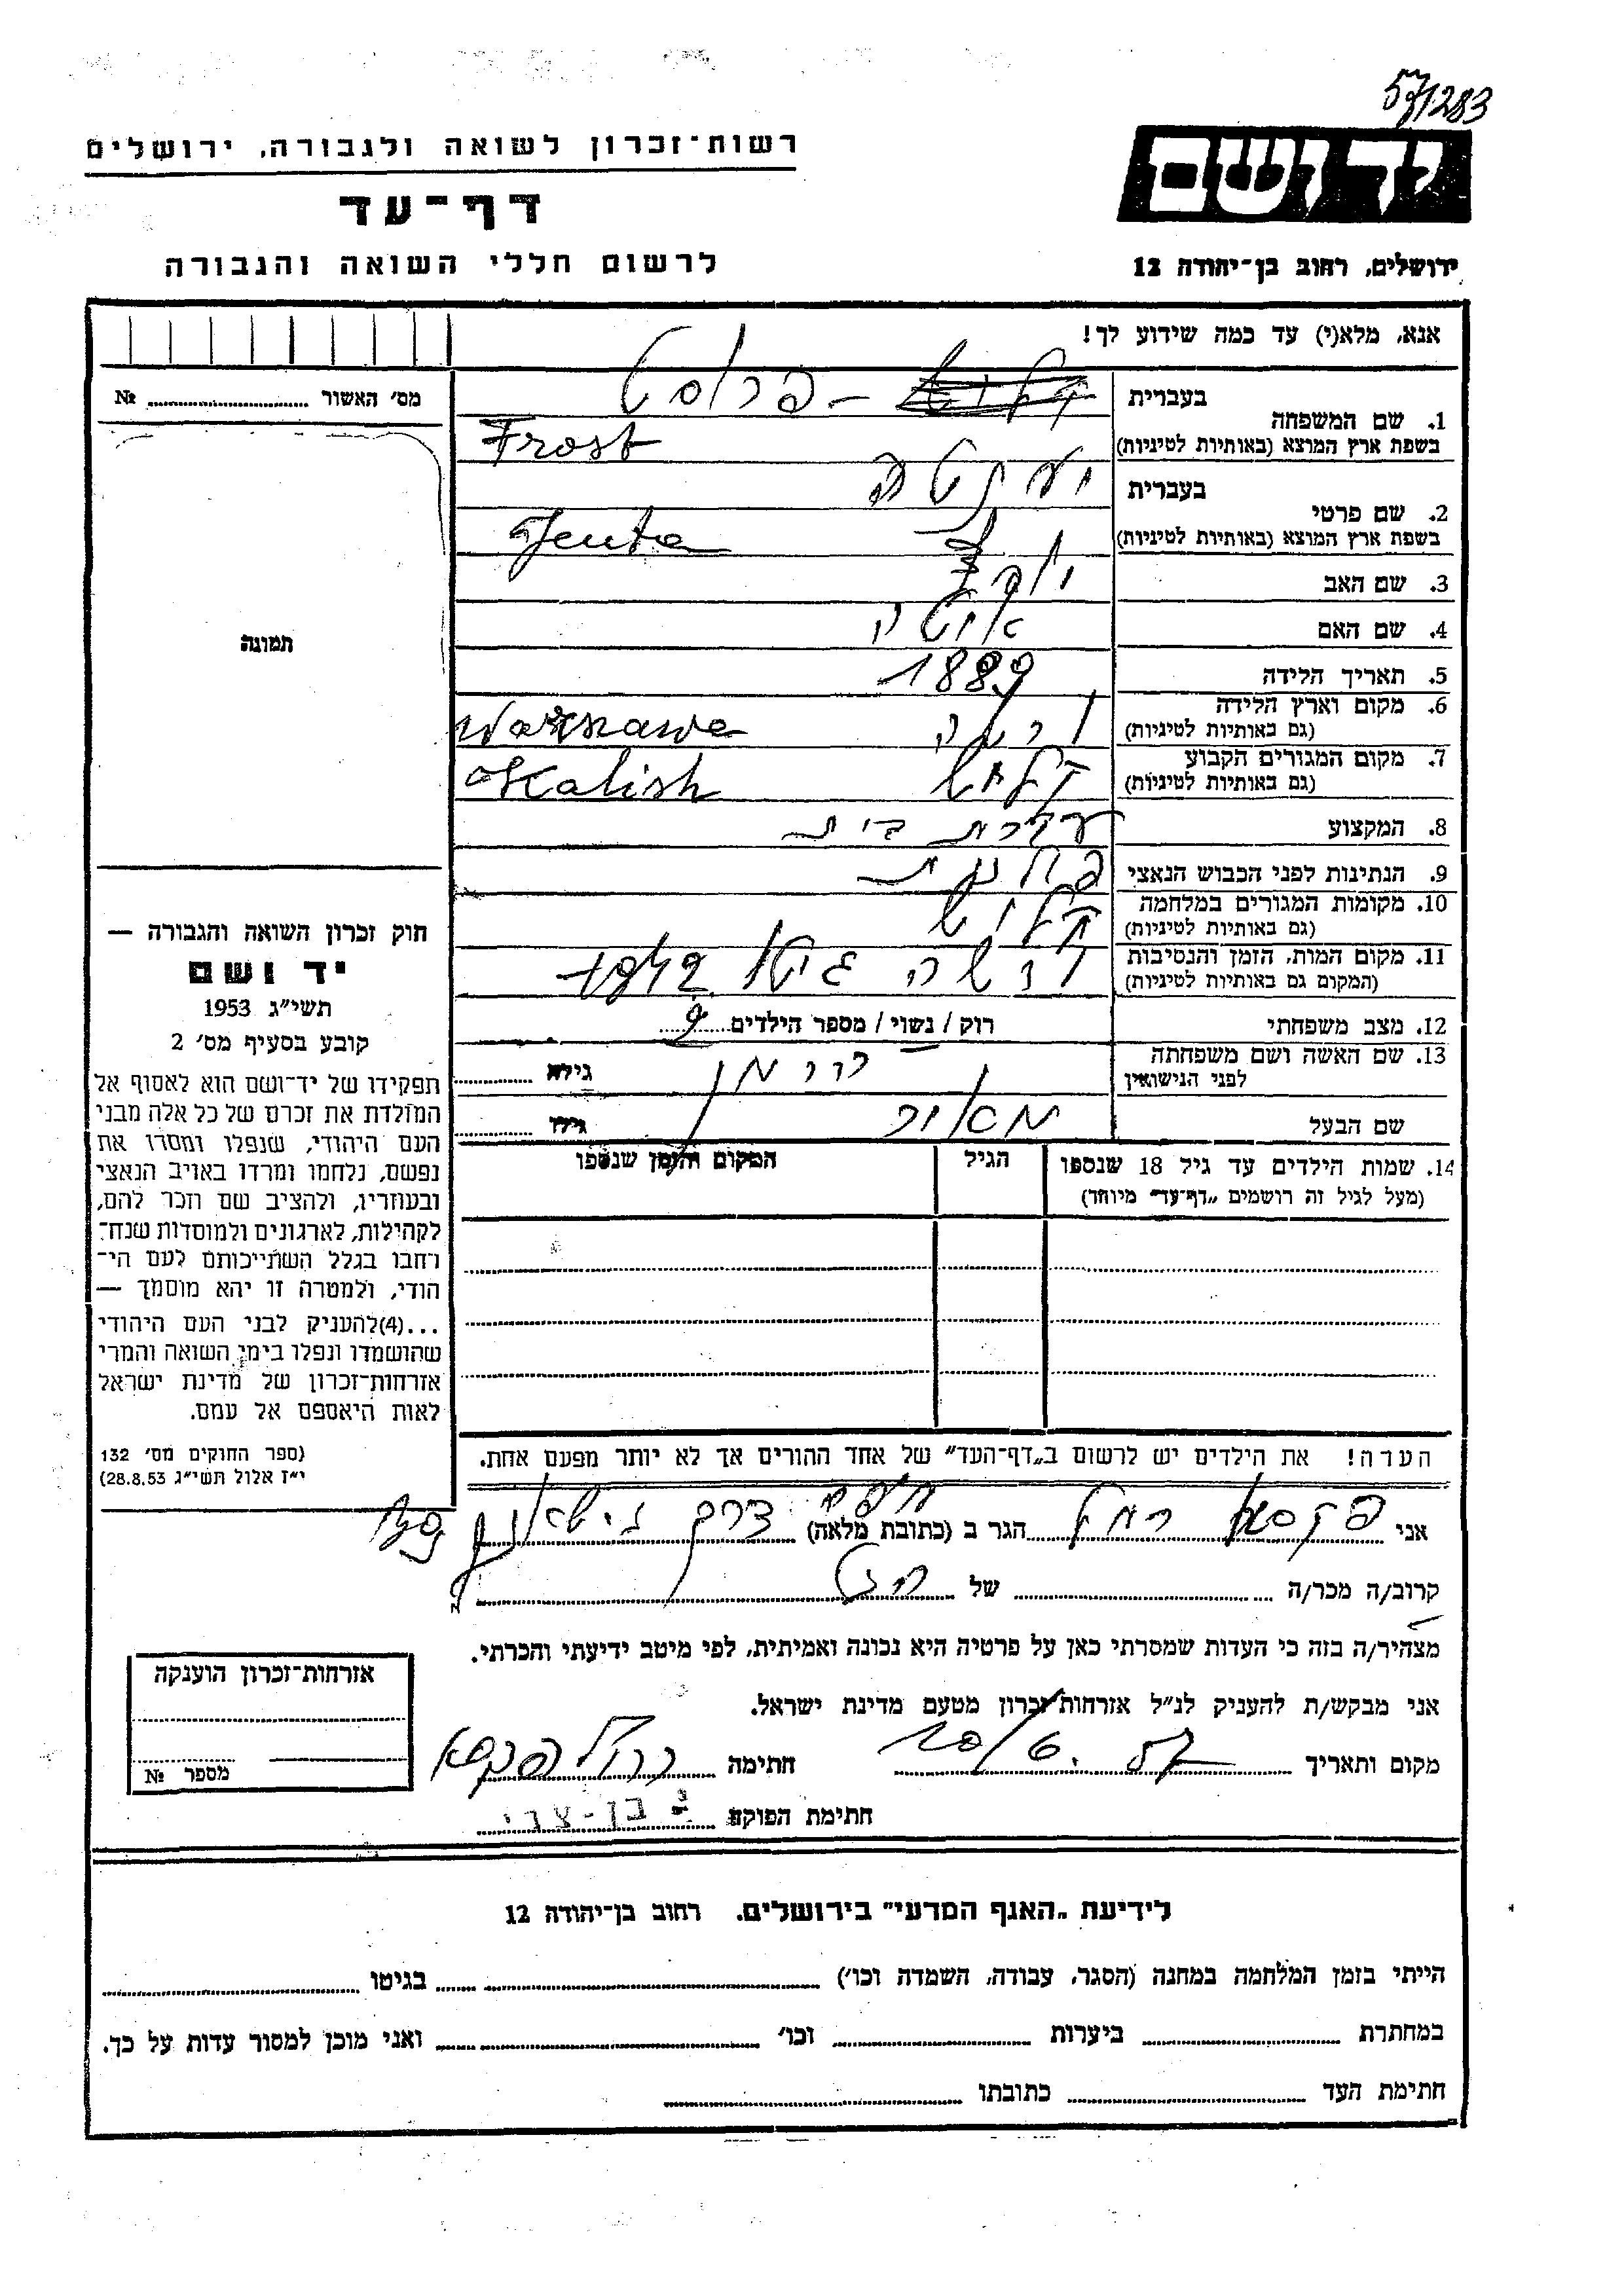 57/1283
רשות־זכרון לשואה ולגבורה, ירושלים
יד ושם
דף־עד
לרשום חללי השואה והגבורה
ירושלים, רחוב בן־יהודה 12
אנא, מלא(י) עד כמה שידוע לך!
מס׳ האשור № ........
1. שם המשפחה בעברית פרוסט
בשפת ארץ המוצא (באותיות לטיניות) Frost
2. שם פרטי בעברית יענטה
בשפת ארץ המוצא (באותיות לטיניות) Jenta
3. שם האב
4. שם האם איטה
5. תאריך הלידה 1889
6. מקום וארץ הלידה (גם באותיות לטיניות) ורשה Warszawa
7. מקום המגורים הקבוע (גם באותיות לטיניות) קליש Kalish
8. המקצוע עקרת בית
9. הנתינות לפני הכבוש הנאצי פולנית
10. מקומות המגורים במלחמה (גם באותיות לטיניות) קליש
11. מקום המות, הזמן והנסיבות (המקום גם באותיות לטיניות) ורשה גיטו 1942
12. מצב משפחתי רוק / נשוי / מספר הילדים 9
13. שם האשה ושם משפחתה לפני הנישואין גילה
שם הבעל מאיר גילו
תמונה
חוק זכרון השואה והגבורה —
יד ושם
תשי״ג 1953
קובע בסעיף מס׳ 2
תפקידו של יד־ושם הוא לאסוף אל
המולדת את זכרם של כל אלה מבני
העם היהודי, שנפלו ומסרו את
נפשם, נלחמו ומרדו באויב הנאצי
ובעוזריו, ולהציב שם וזכר להם,
לקהילות, לארגונים ולמוסדות שנח־
רבו בגלל השתייכותם לעם הי־
הודי, ולמטרה זו יהא מוסמך —
...(4) להעניק לבני העם היהודי
שהושמדו ונפלו בימי השואה והמרי
אזרחות־זכרון של מדינת ישראל
לאות היאספם אל עמם.
(ספר החוקים מס׳ 132
י״ז אלול תשי״ג 28.8.53)
14. שמות הילדים עד גיל 18 שנספו הגיל המקום והזמן שנספו
(מעל לגיל זה רושמים „דף־עד״ מיוחד)
הערה! את הילדים יש לרשום ב„דף־העד״ של אחד ההורים אך לא יותר מפעם אחת.
אני רחל הגר ב (כתובת מלאה) חיפה דרך
קרוב/ה מכר/ה של בת
מצהיר/ה בזה כי העדות שמסרתי כאן על פרטיה היא נכונה ואמיתית, לפי מיטב ידיעתי והכרתי.
אני מבקש/ת להעניק לנ״ל אזרחות־זכרון מטעם מדינת ישראל.
מקום ותאריך 20/6.57 חתימה רחל
חתימת הפוקד בן-צבי
אזרחות־זכרון הוענקה
מספר №
לידיעת „האגף המדעי״ בירושלים, רחוב בן־יהודה 12
הייתי בזמן המלחמה במחנה (הסגר, עבודה, השמדה וכו׳) ........ בגיטו ........
במחתרת ........ ביערות ........ וכו׳ ........ ואני מוכן למסור עדות על כך.
חתימת העד ........ כתובתו ........